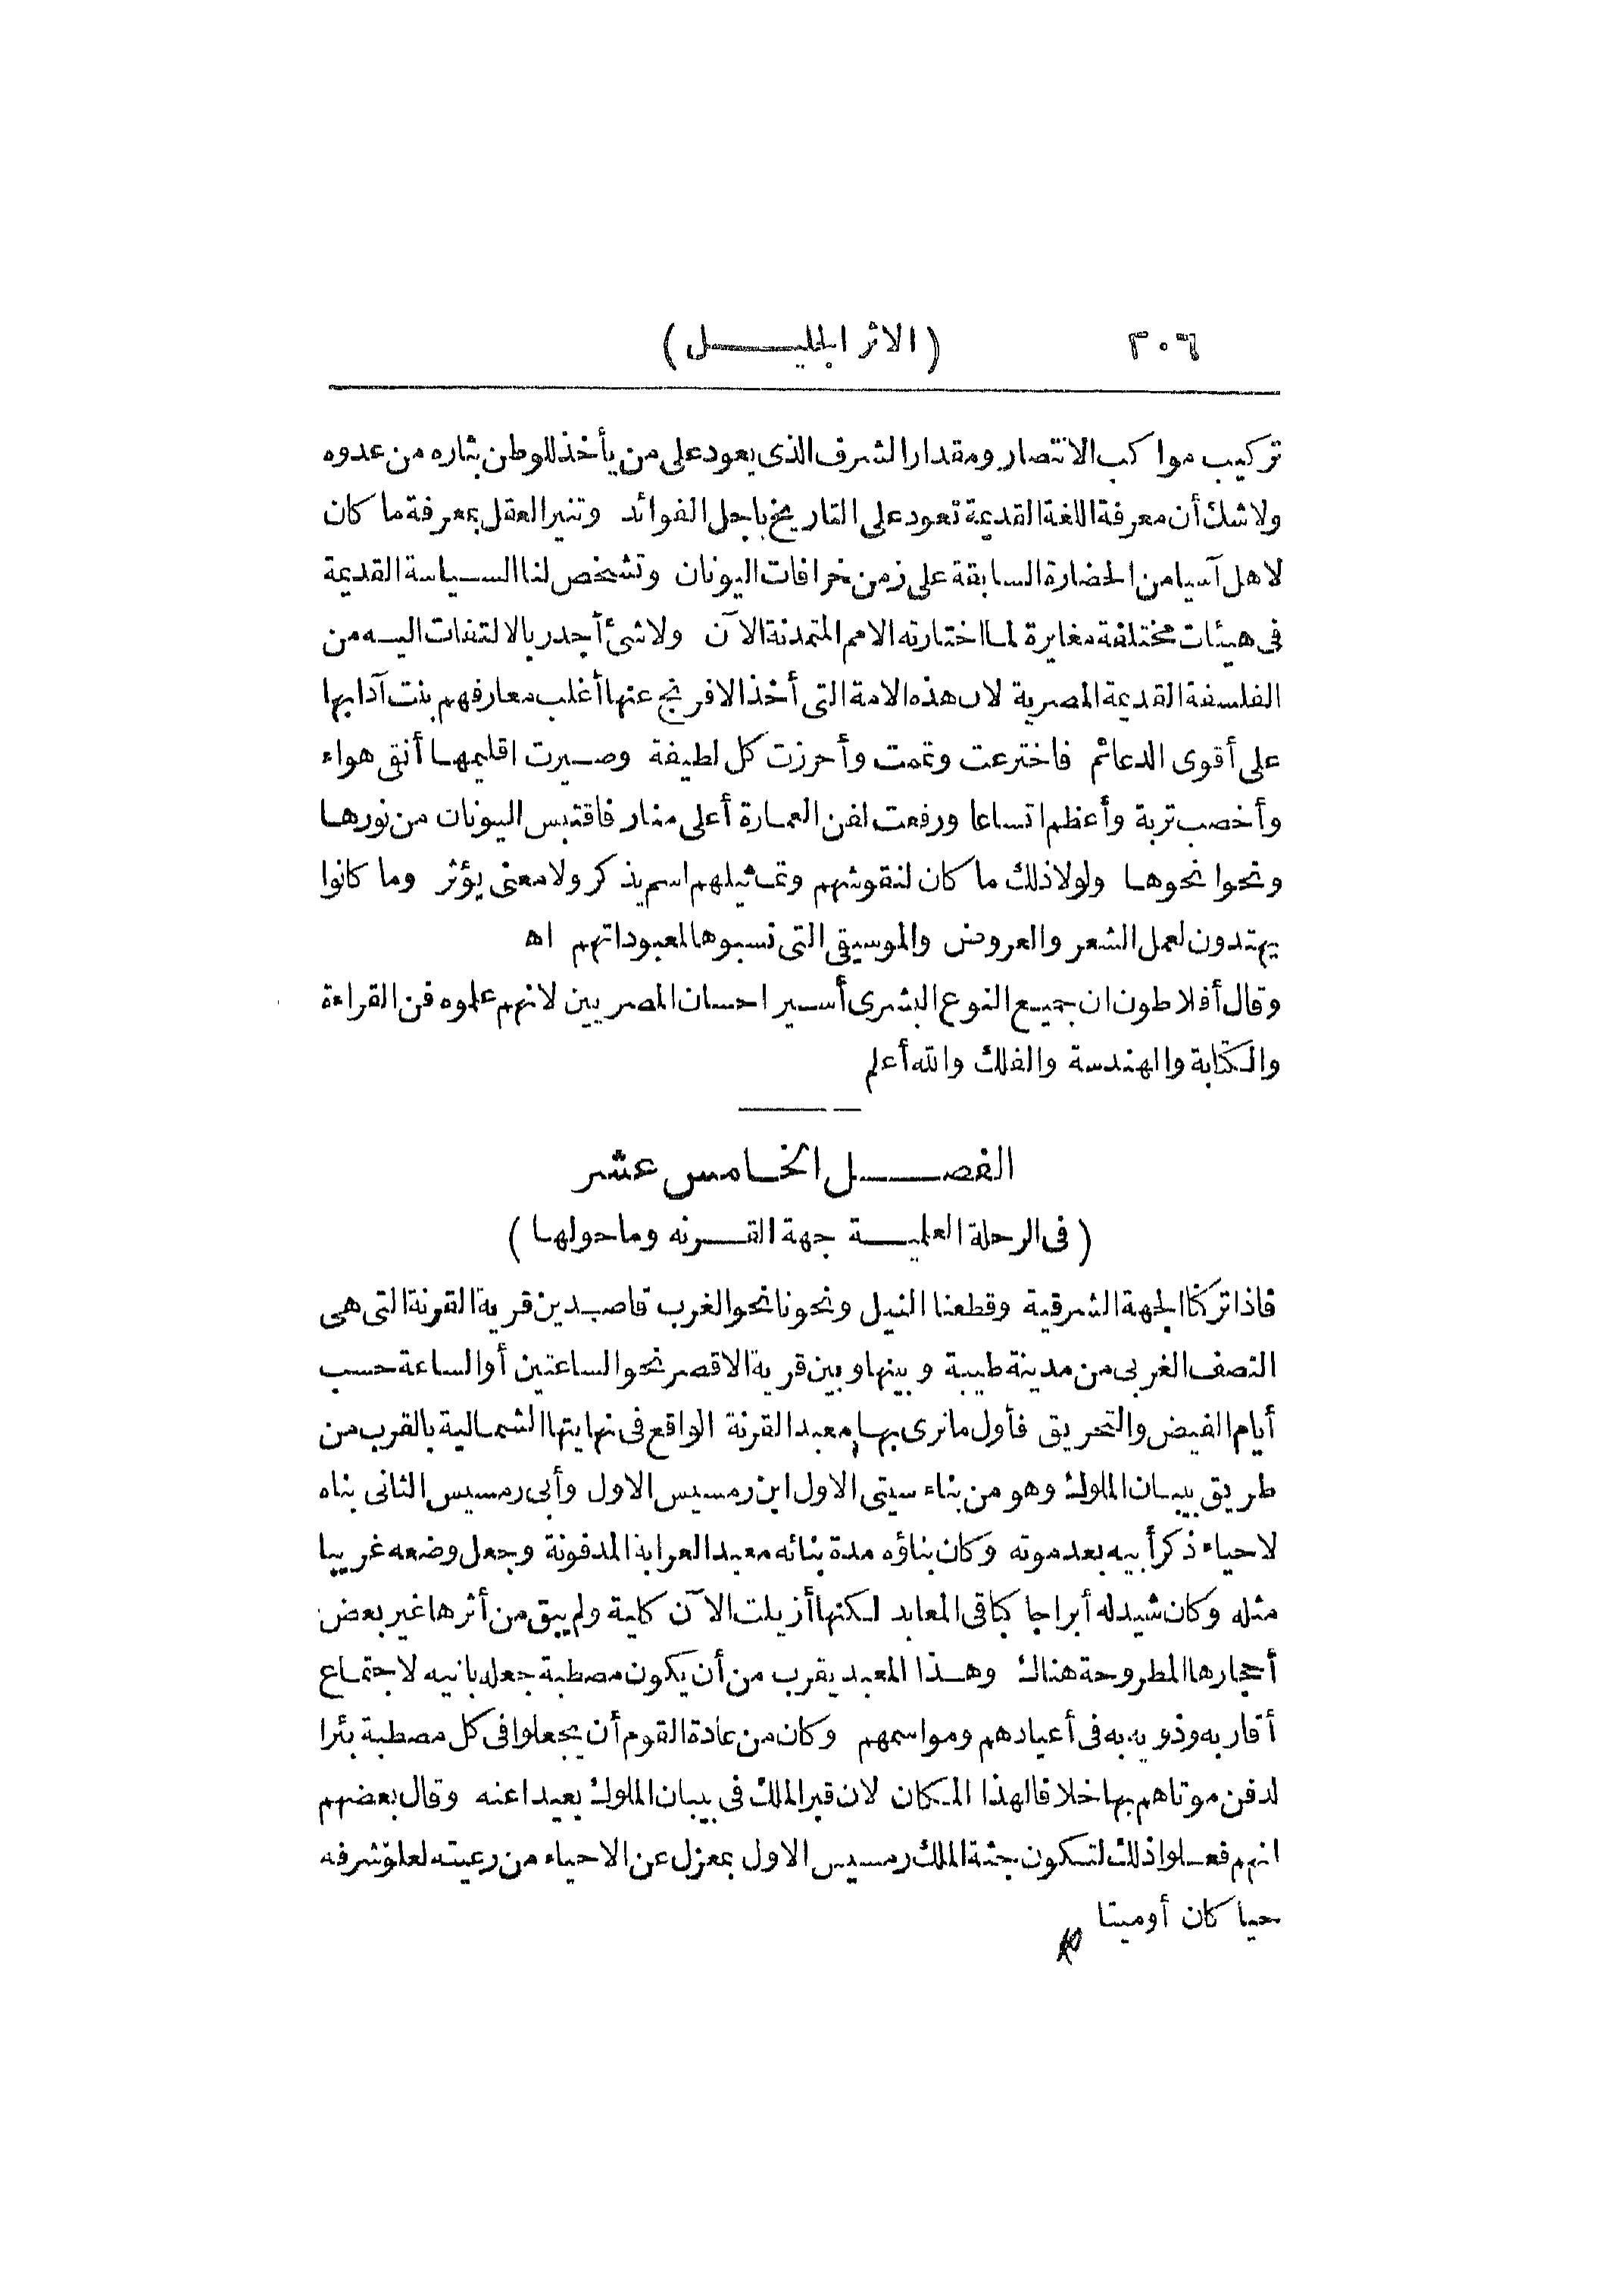 ٣٠٦ (الاثر الجليل)
تركيب مواكب الانتصار ومقدار الشرف الذى يعود على من يأخذ للوطن بثاره من عدوه
ولاشك أن معرفة اللغة القديمة تعود على التاريخ باجل الفوائد وتنير العقل بمعرفة ما كان
لاهل آسيا من الحضارة السابقة على زمن خرافات اليونان وتشخص لنا السياسة القديمة
فى هيئات مختلفة مغايرة لما اختارته الامم المتمدنة الآن ولاشئ أجدر بالالتفات اليه من
الفلسفة القديمة المصرية لان هذه الامة التى أخذ الافرنج عنها أغلب معارفهم بنت آدابها
على أقوى الدعائم فاخترعت وتممت وأحرزت كل لطيفة وصيرت اقليمها أنقى هواء
وأخصب تربة وأعظم اتساعا ورفعت لفن العمارة أعلى منار فاقتبس اليونان من نورها
ونحوا نحوها ولولا ذلك ما كان لنقوشهم وتماثيلهم اسم يذكر ولا معنى يؤثر وما كانوا
يهتدون لعمل الشعر والعروض والموسيقى التى نسبوها لمعبوداتهم اه
وقال أفلاطون ان جميع النوع البشرى أسير احسان المصريين لانهم علموه فن القراءة
والكتابة والهندسة والفلك والله أعلم
الفصل الخامس عشر
(فى الرحلة العلمية جهة القرنه وما حولها)
فاذا تركنا الجهة الشرقية وقطعنا النيل ونحونا نحو الغرب قاصدين قرية القرنة التى هى
النصف الغربى من مدينة طيبة وبينها وبين قرية الاقصر نحو الساعتين أو الساعة حسب
أيام الفيض والتحريق فأول مانرى بها معبد القرنة الواقع فى نهايتها الشمالية بالقرب من
طريق بيبان الملوك وهو من بناء سيتى الاول ابن رمسيس الاول وأبى رمسيس الثانى بناه
لاحياء ذكر أبيه بعد موته وكان بناؤه مدة بنائه معبد العرابة المدفونة وجعل وضعه غريبا
مثله وكان شيد له أبراجا كباقى المعابد لكنها أزيلت الآن كلية ولم يبق من أثرها غير بعض
أحجارها المطروحة هناك وهذا المعبد يقرب من أن يكون مصطبة جعله بانيه لاجتماع
أقاربه وذويه به فى أعيادهم ومواسمهم وكان من عادة القوم أن يجعلوا فى كل مصطبة بئرا
لدفن موتاهم بها خلافا لهذا المكان لان قبر الملك فى بيبان الملوك بعيدا عنه وقال بعضهم
انهم فعلوا ذلك لتكون جثة الملك رمسيس الاول بمعزل عن الاحياء من رعيته لعلوّ شرفه
حيا كان أو ميتا